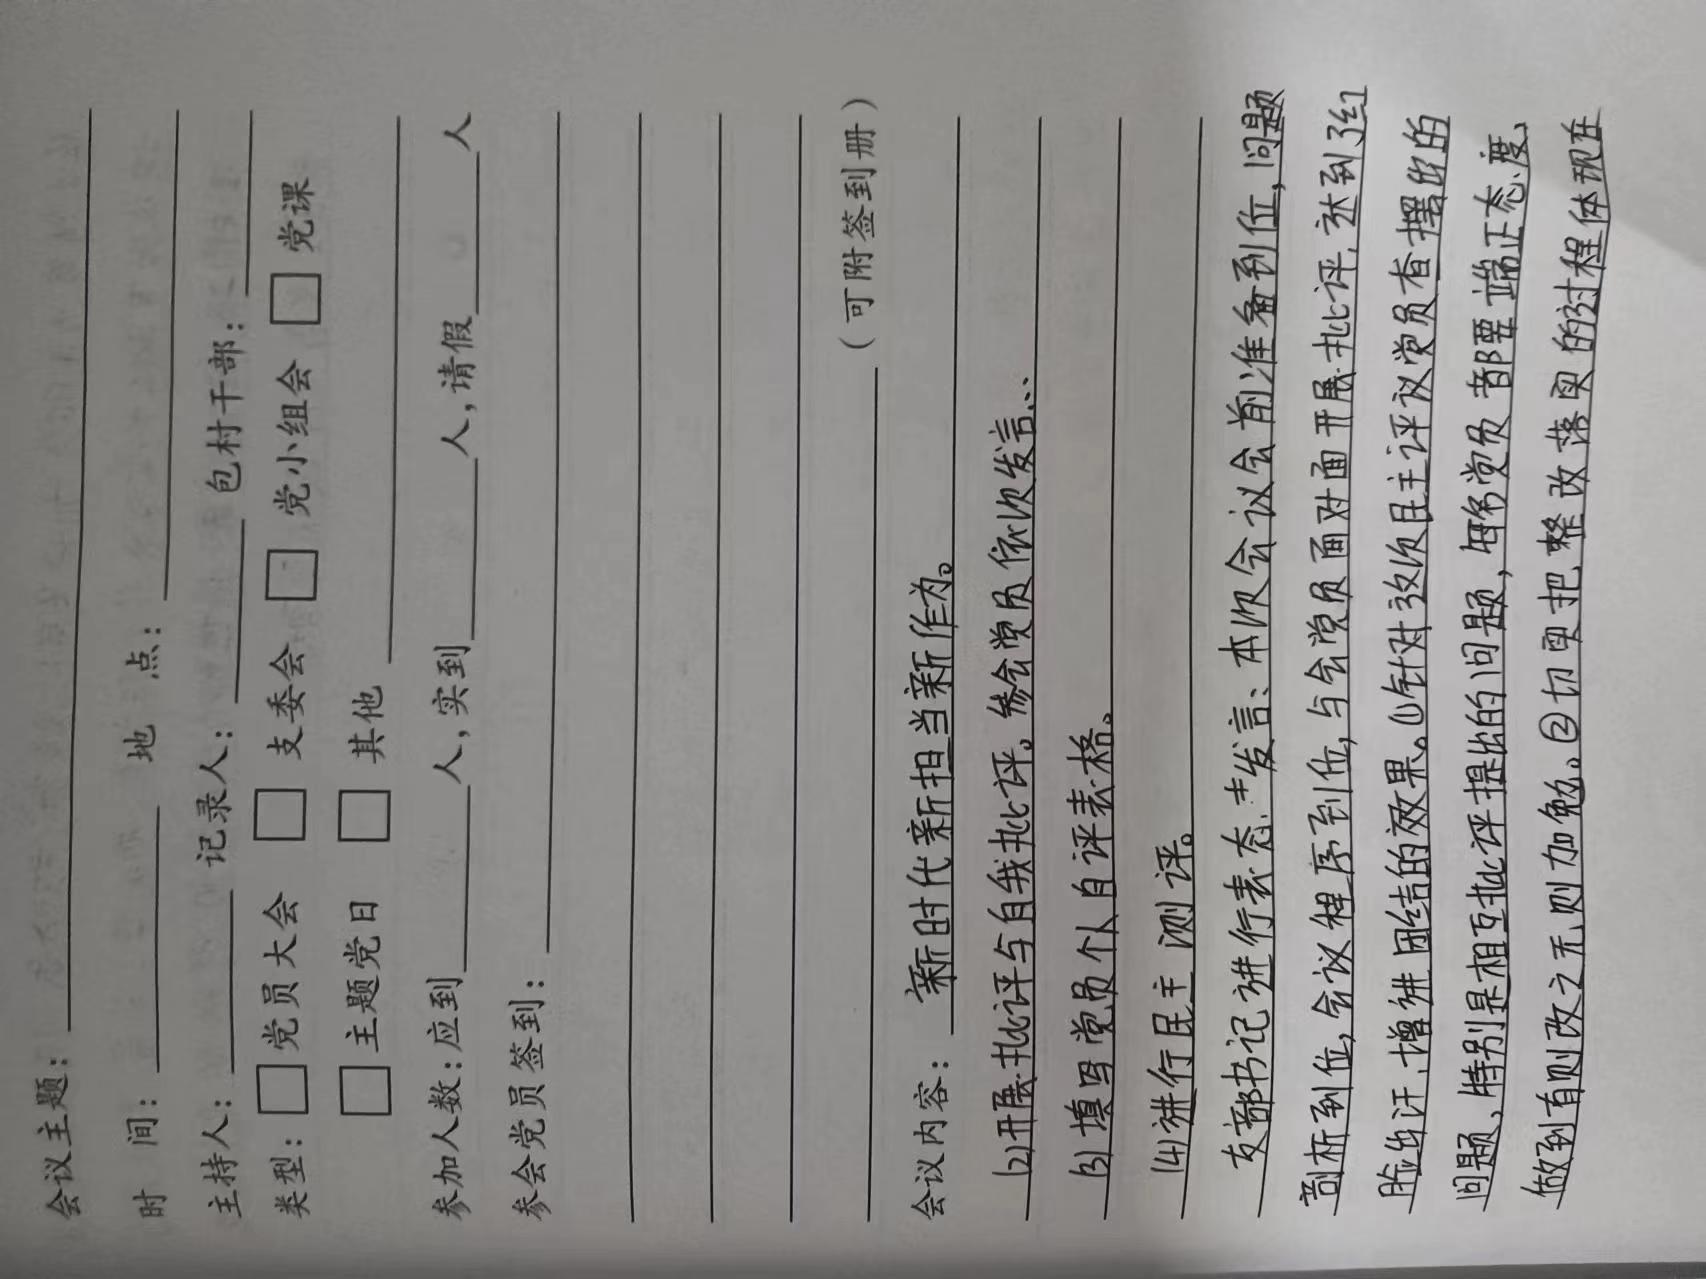 会议主题：
时 间： 地 点：
主持人： 记录人： 包村干部：
类型： 党员大会 支委会 党小组会 党课
主题党日 其他
参加人数：应到 人，实到 人，请假 人
参会党员签到：
（可附签到册）
会议内容： 新时代新担当新作为。
(2)开展批评与自我批评。参会党员依次发言、
(3)填写党员个人自评表格。
(4)进行民主测评。
支部书记进行表态发言：本次会议会前准备到位，问题
剖析到位，会议程序到位，与会党员面对面开展批评，达到了红
脸出汗，增进团结的效果。①针对这次民主评议党员查摆出的
问题，特别是相互批评提出的问题，每名党员都要端正态度，
做到有则改之无则加勉。②切实把整改落实的过程体现在